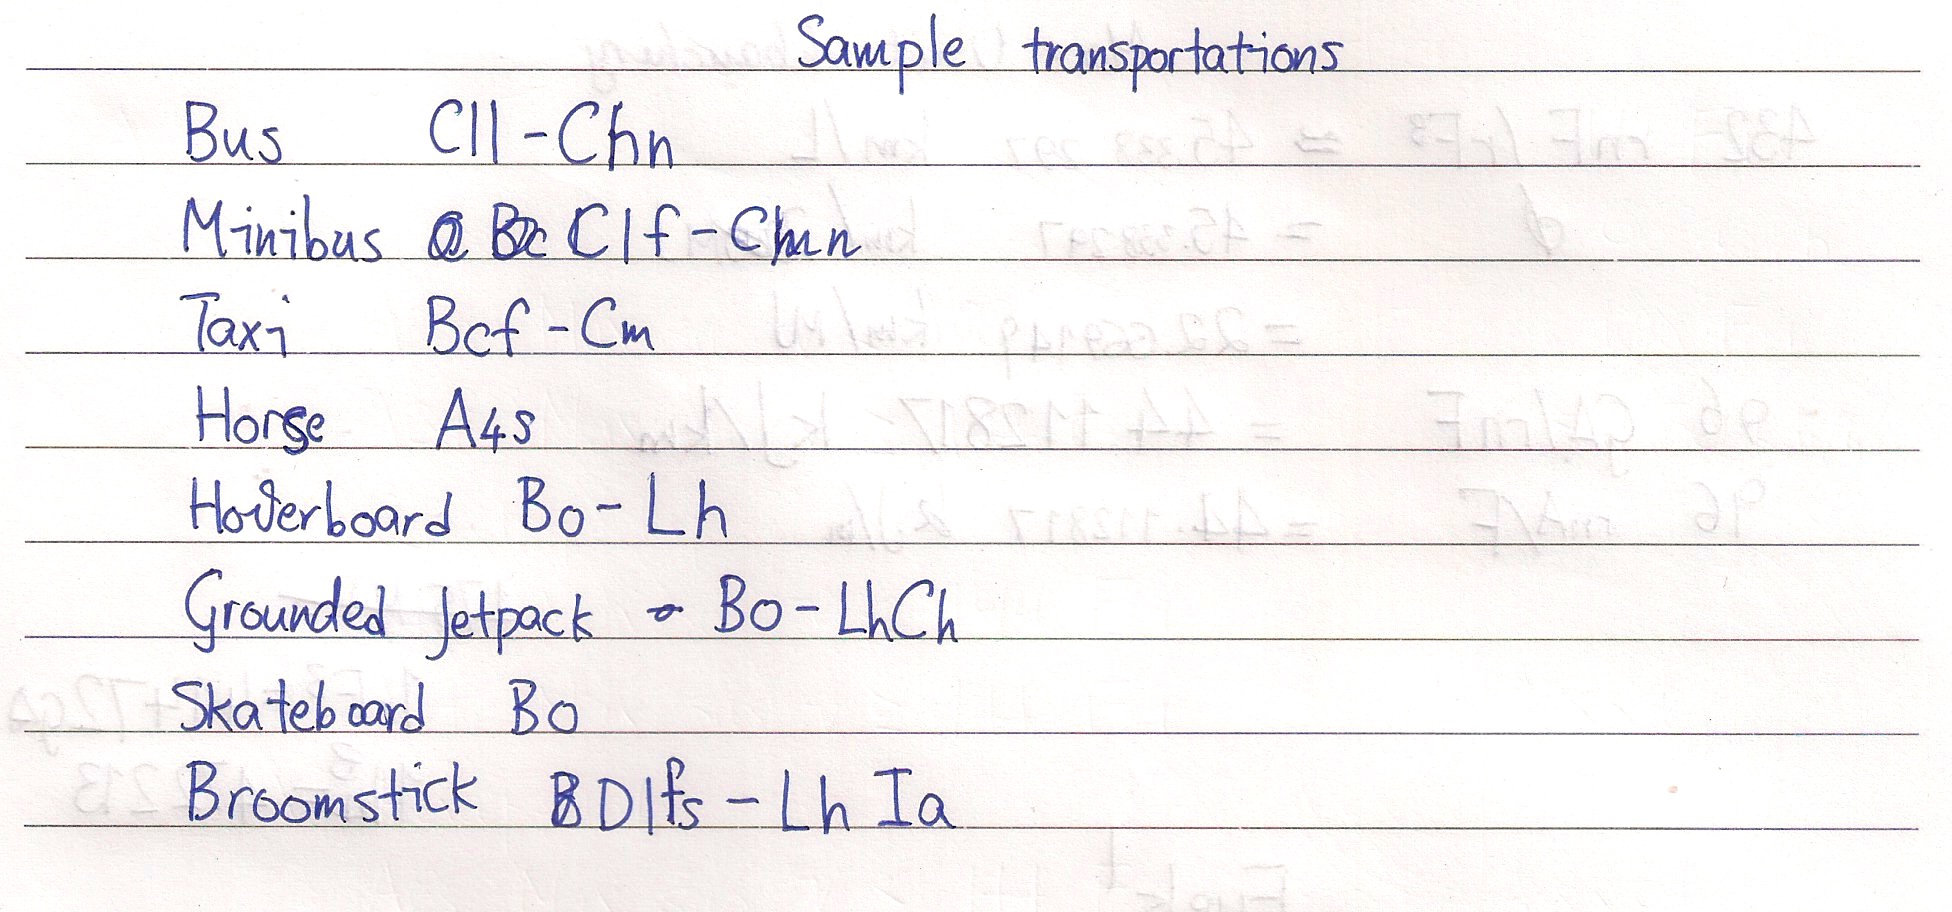 Sample transportations
Bus Cll-Chn
Minibus Clf-Chmn
Taxi Bcf-Cm
Horse A4s
Hoverboard Bo-Lh
Grounded Jetpack Bo-LhCh
Skateboard Bo
Broomstick Dlfs-LhIa